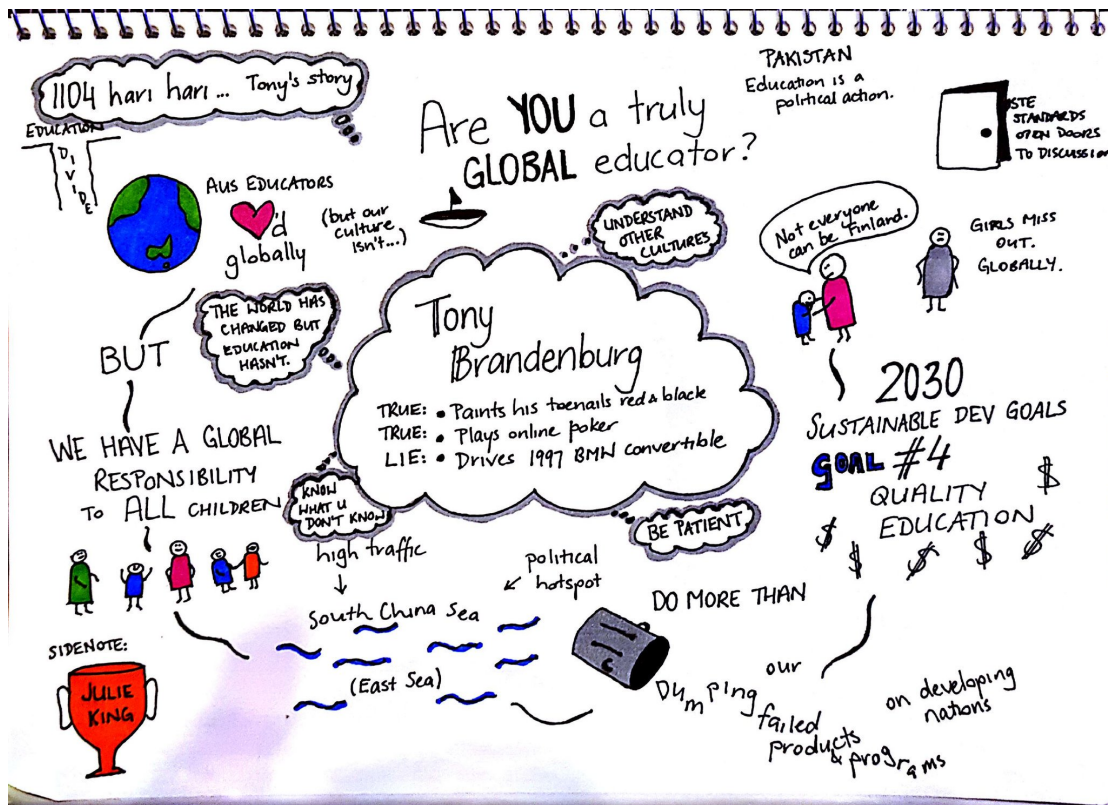 1104 hari hari... Tony's story
EDUCATION
DIVIDE
AUS EDUCATORS
'd
globally
(but our
culture
isn't...)
Are YOU a truly
GLOBAL educator?
PAKISTAN
Education is a
political action.
ISTE
STANDARDS
OPEN DOORS
TO DISCUSSION
UNDERSTAND
OTHER
CULTURES
Not everyone
can be Finland.
GIRLS MISS
OUT.
GLOBALLY.
THE WORLD HAS
CHANGED BUT
EDUCATION
HASN'T.
BUT
Tony
Brandenburg
TRUE: • Paints his toenails red & black
TRUE: • Plays online poker
LIE: • Drives 1997 BMW convertible
2030
SUSTAINABLE DEV GOALS
GOAL #4
QUALITY
EDUCATION
$ $ $ $ $ $
WE HAVE A GLOBAL
RESPONSIBILITY
TO ALL CHILDREN
KNOW
WHAT U
DON'T KNOW
BE PATIENT
high traffic
political
hotspot
South China Sea
(East Sea)
DO MORE THAN
Dumping
our
failed
products
& programs
on developing
nations
SIDENOTE:
JULIE
KING